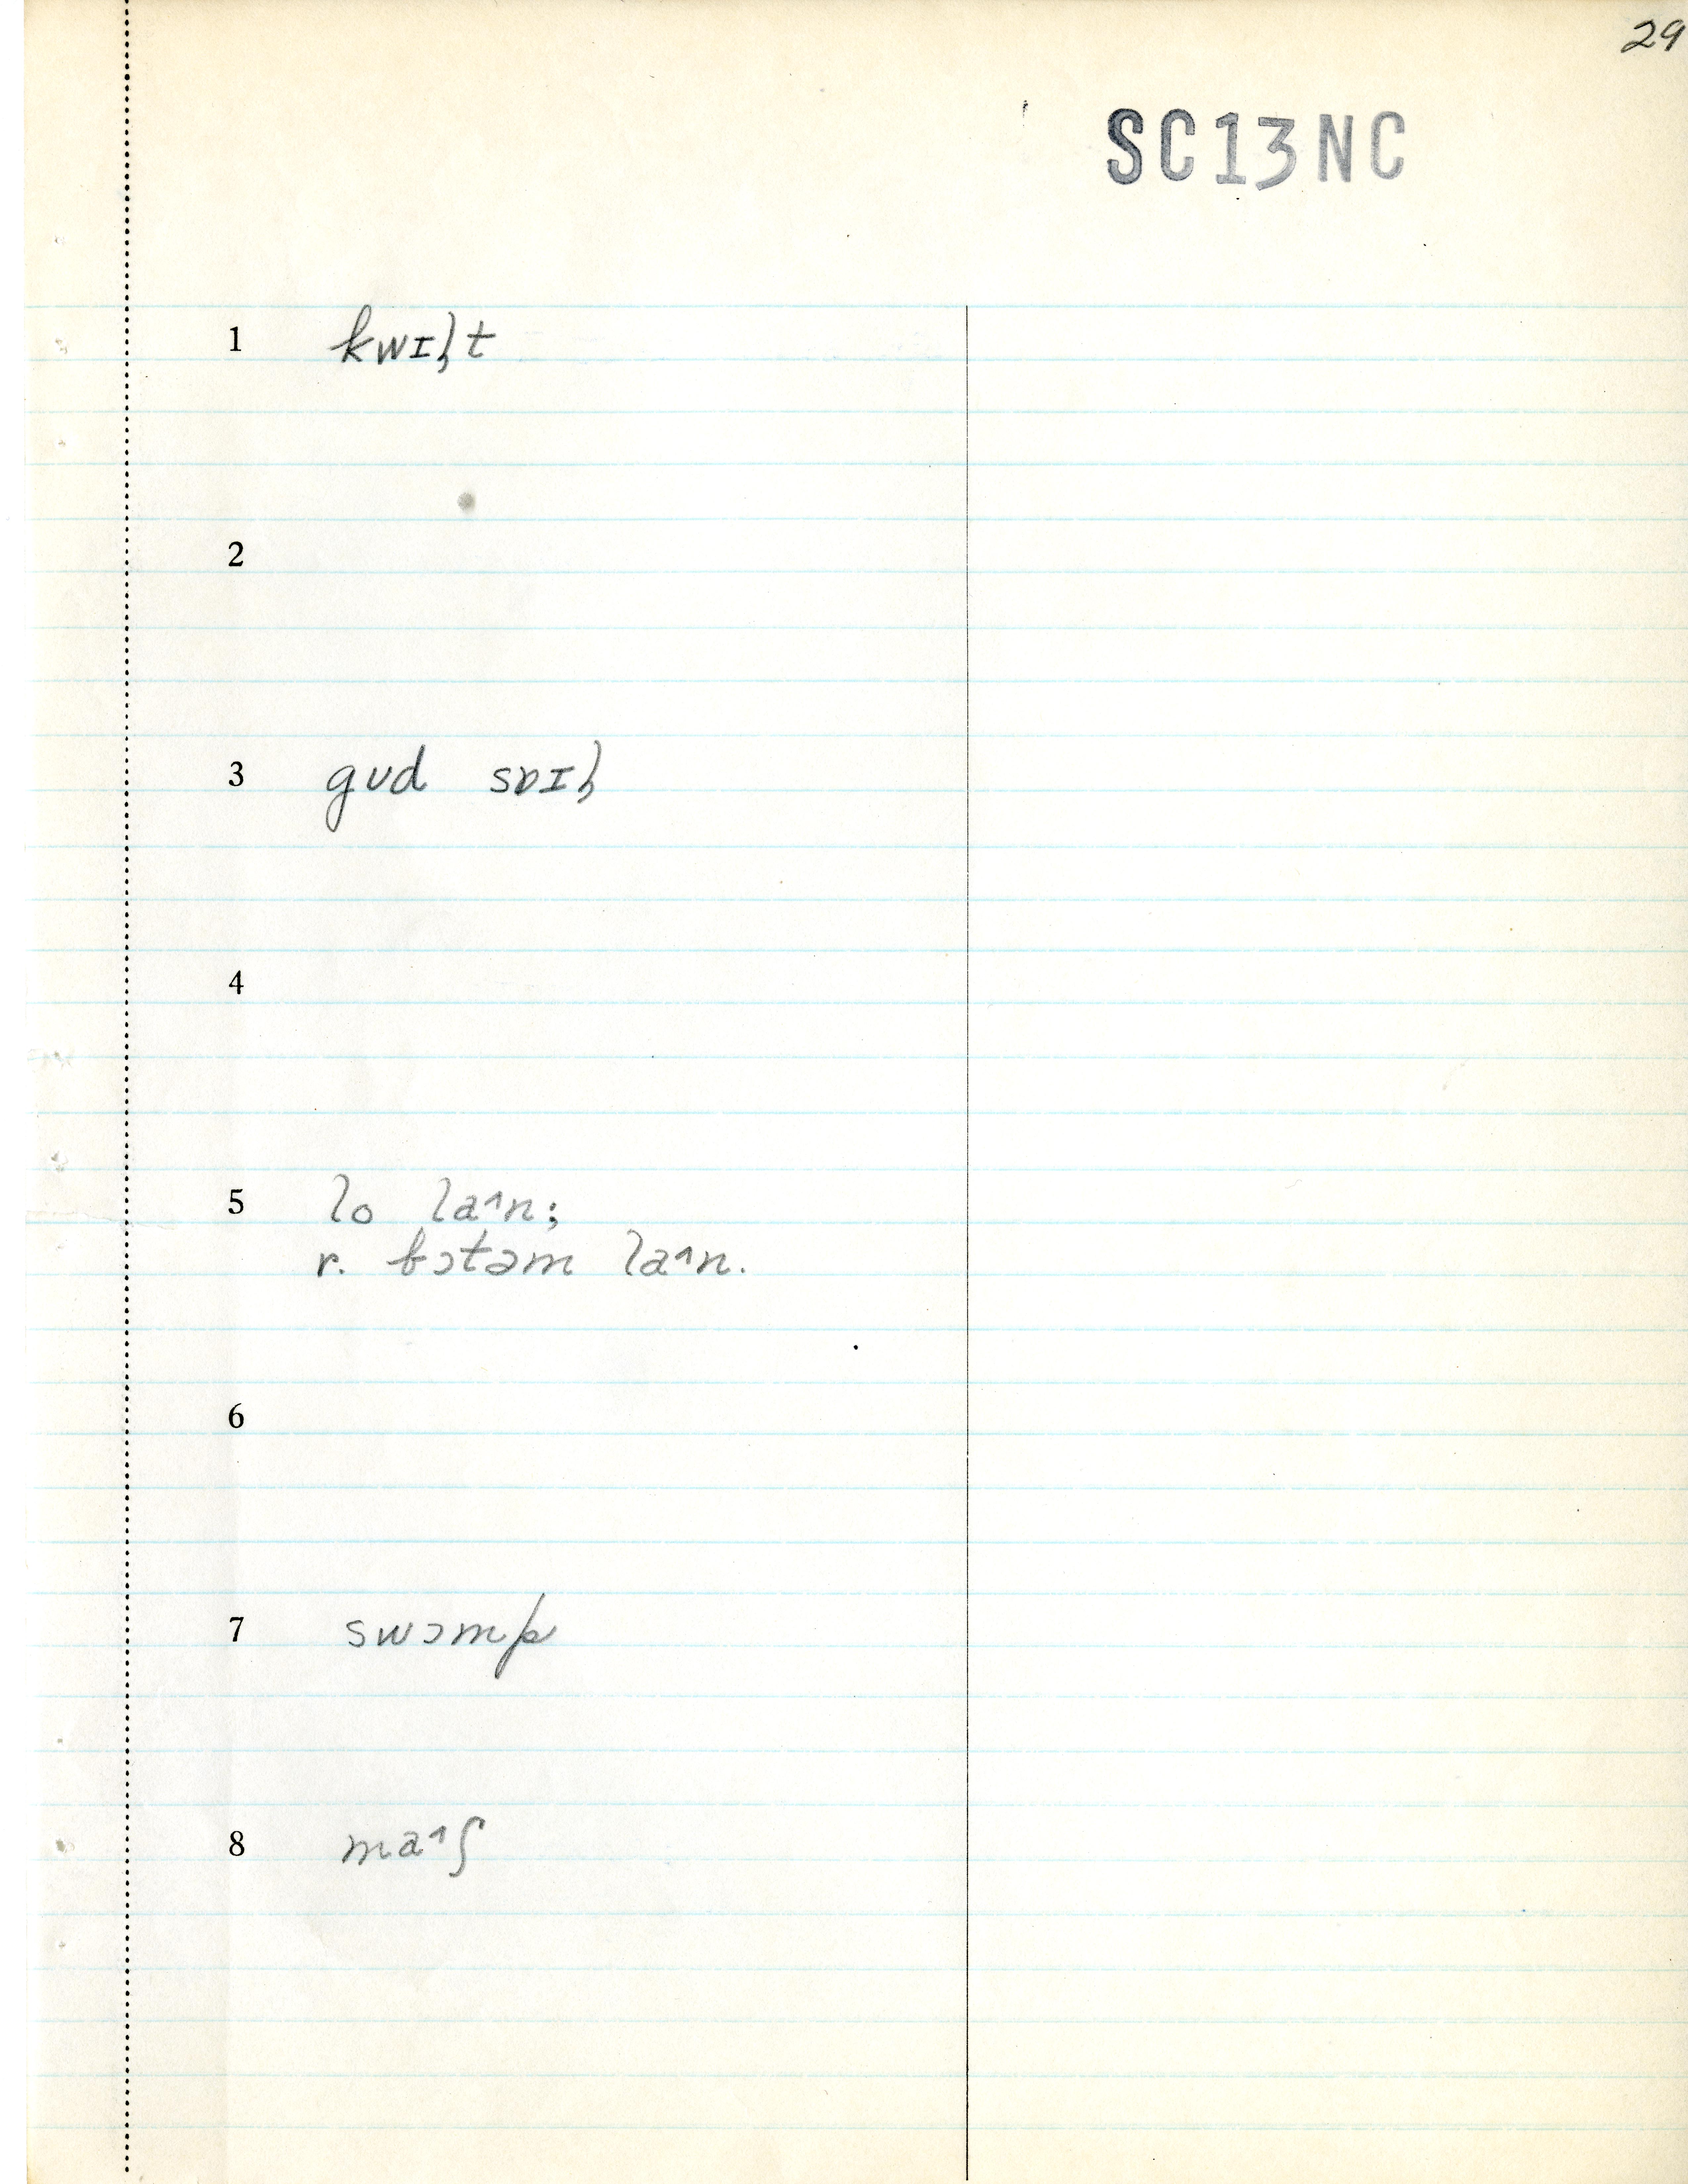 29
SC13NC
1 kwɪɫt
2
3 gʊd sɒɪɫ
4
5 lo la^n;
r. bɔtəm la^n.
6
7 swɔmp
8 ma^ʃ